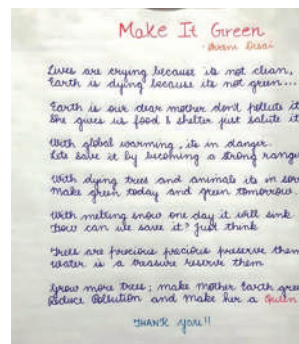 Make It Green
- Avani Desai
Lives are crying because its not clean,
Earth is dying because its not green...
Earth is our dear mother dont pollute it
She gives us food & shelter just salute it
With global warming, its in danger.
Lets save it by becoming a strong range
With dying trees and animals its in sor
Make green today and green tomorrow.
With melting snow one day it will sink
How can we save it? Just think
Trees are precious precious preserve them
water is a treasure reserve them
Grow more trees; make mother Earth gree
Reduce Pollution and make her a Queen
THANK you!!